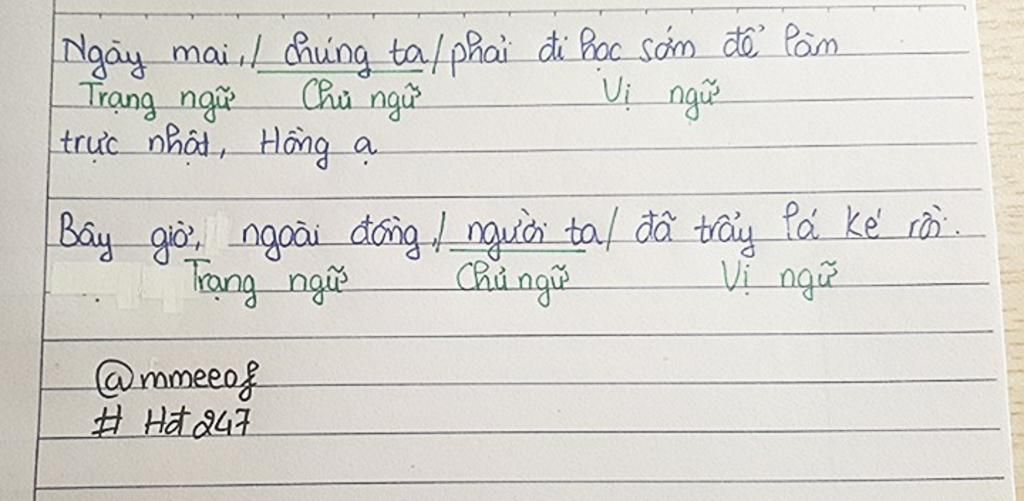 Ngày mai, / chúng ta / phải đi học sớm để làm
Trạng ngữ Chủ ngữ Vị ngữ
trực nhật, Hồng ạ
Bây giờ, ngoài đồng, / người ta / đã trẩy lá ké rồi.
Trạng ngữ Chủ ngữ Vị ngữ
@mmeeof
# Hđ247